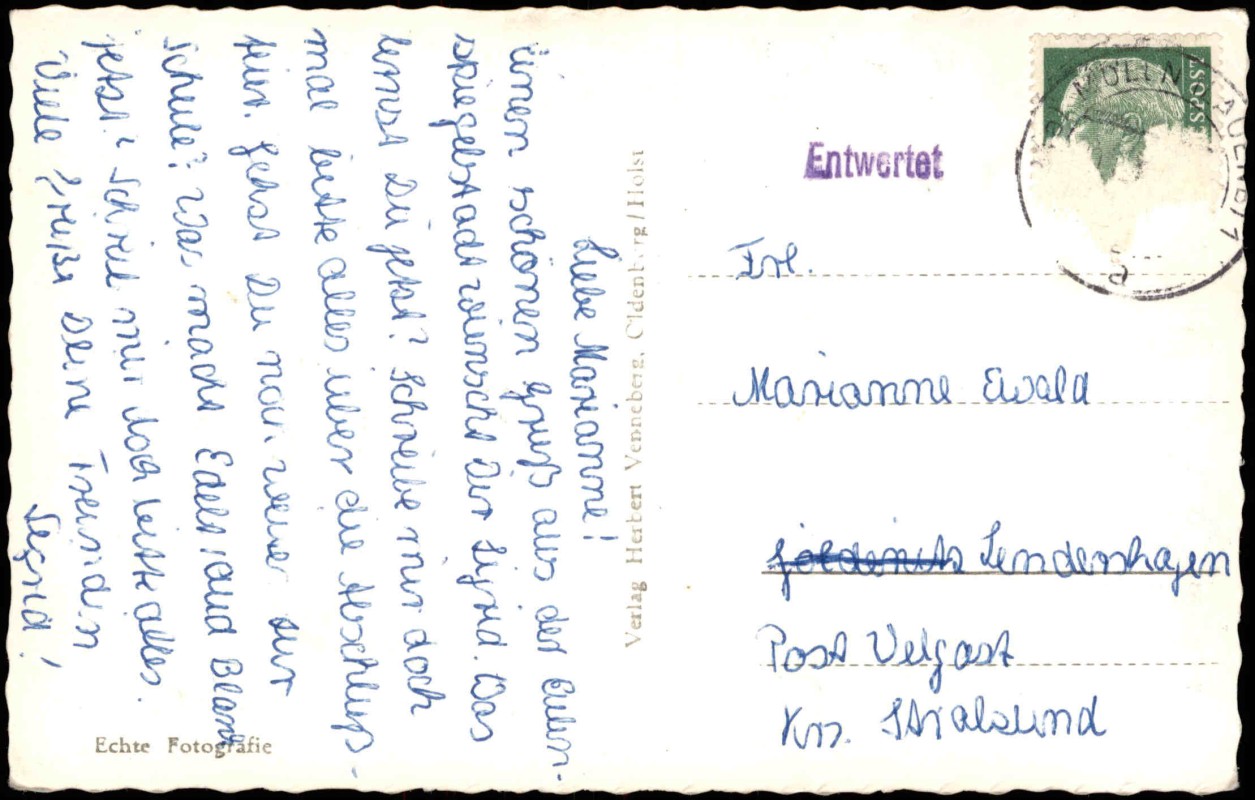 Liebe Marianne!
Einen schönen Gruß aus der Eulen-
spiegelstadt wünscht Dir Sigrid. Was
lernst Du jetzt? Schreibe mir doch
mal bitte alles über die Abschluß-
feier. Gehst Du noch weiter zur
Schule? Was macht Edeltraud Blank
jetzt? Schreib mir doch bitte alles.
Viele Grüße Deine Freundin
Sigrid!
Echte Fotografie
Verlag Herbert Venneberg, Oldenburg/Holst
Entwertet
SPOST
MÖLLN
a
Frl.
Marianne Ewald
Lendershagen
Post Velgast
Krs. Stralsund